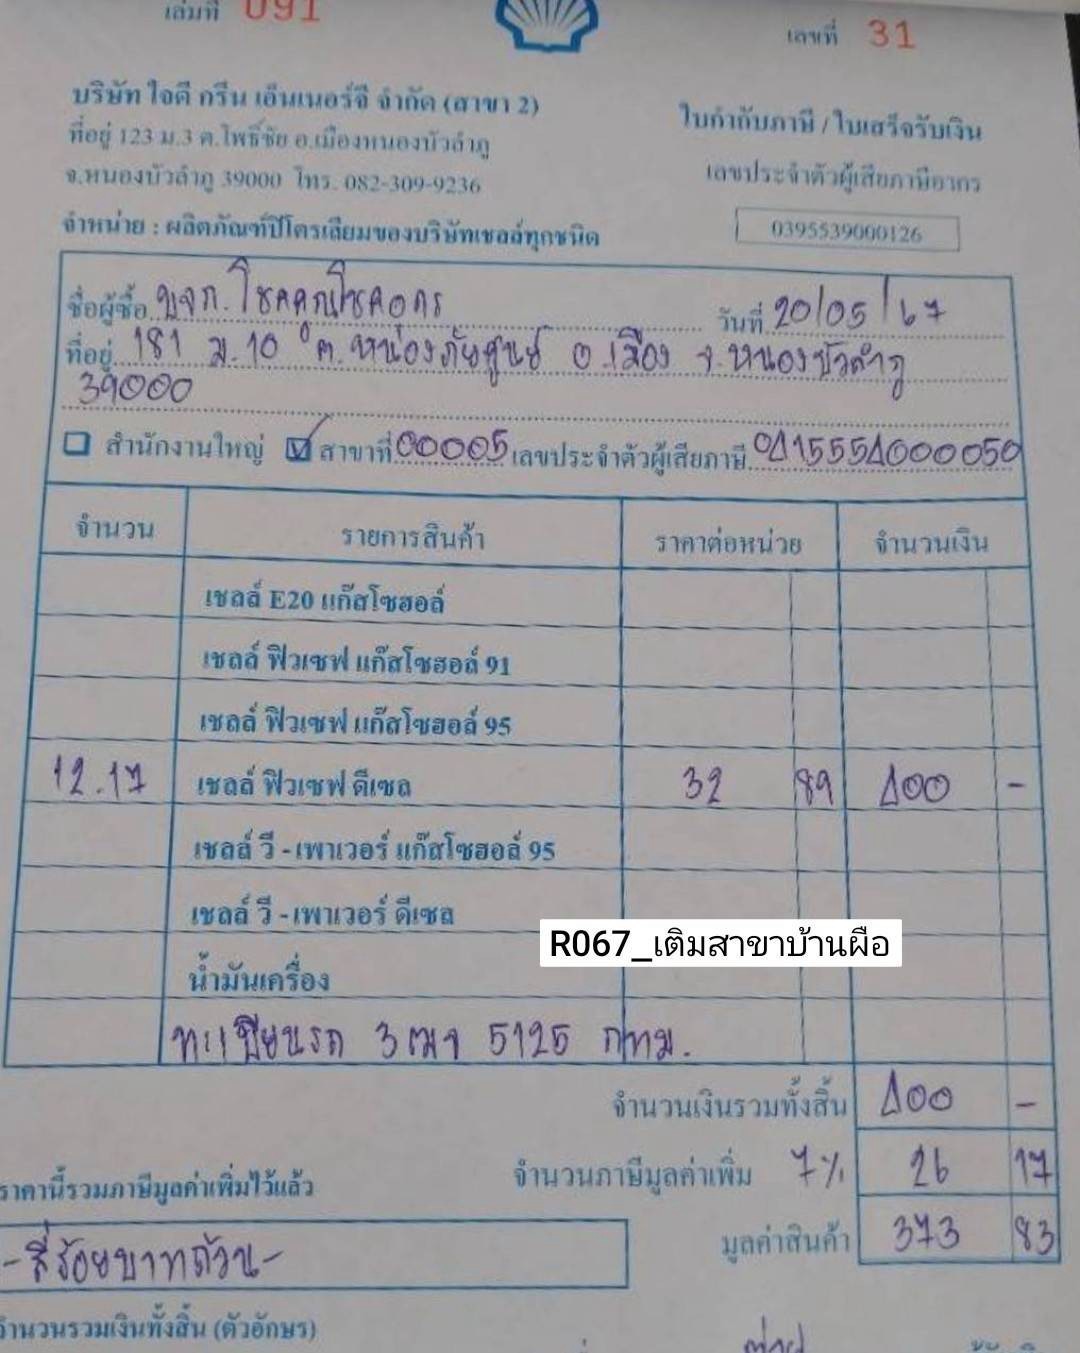 เล่มที่ 091
เลขที่ 31
บริษัท ใจดี กรีน เอ็นเนอร์จี จำกัด (สาขา 2)
ที่อยู่ 123 ม.3 ต.โพธิ์ชัย อ.เมืองหนองบัวลำภู
จ.หนองบัวลำภู 39000 โทร. 082-309-9236
จำหน่าย : ผลิตภัณฑ์ปิโตรเลียมของบริษัทเชลล์ทุกชนิด
ใบกำกับภาษี / ใบเสร็จรับเงิน
เลขประจำตัวผู้เสียภาษีอากร
0395539000126
ชื่อผู้ซื้อ บจก. วันที่ 20/05/67
ที่อยู่ 181 ม.10 ต.หนองภัยศูนย์ อ.เมือง จ.หนองบัวลำภู
39000
สำนักงานใหญ่ สาขาที่ 00005 เลขประจำตัวผู้เสียภาษี 0415554000050
จำนวน รายการสินค้า ราคาต่อหน่วย จำนวนเงิน
เชลล์ E20 แก๊สโซฮอล์
เชลล์ ฟิวเซฟ แก๊สโซฮอล์ 91
เชลล์ ฟิวเซฟ แก๊สโซฮอล์ 95
12.17 เชลล์ ฟิวเซฟ ดีเซล 32 89 400 -
เชลล์ วี - เพาเวอร์ แก๊สโซฮอล์ 95
เชลล์ วี - เพาเวอร์ ดีเซล
R067_เติมสาขาบ้านผือ
น้ำมันเครื่อง
ทะเบียนรถ 3ฒจ 5125 กทม.
จำนวนเงินรวมทั้งสิ้น 400 -
จำนวนภาษีมูลค่าเพิ่ม 7% 26 17
ราคานี้รวมภาษีมูลค่าเพิ่มไว้แล้ว
มูลค่าสินค้า 373 83
- สี่ร้อยบาทถ้วน -
จำนวนรวมเงินทั้งสิ้น (ตัวอักษร)